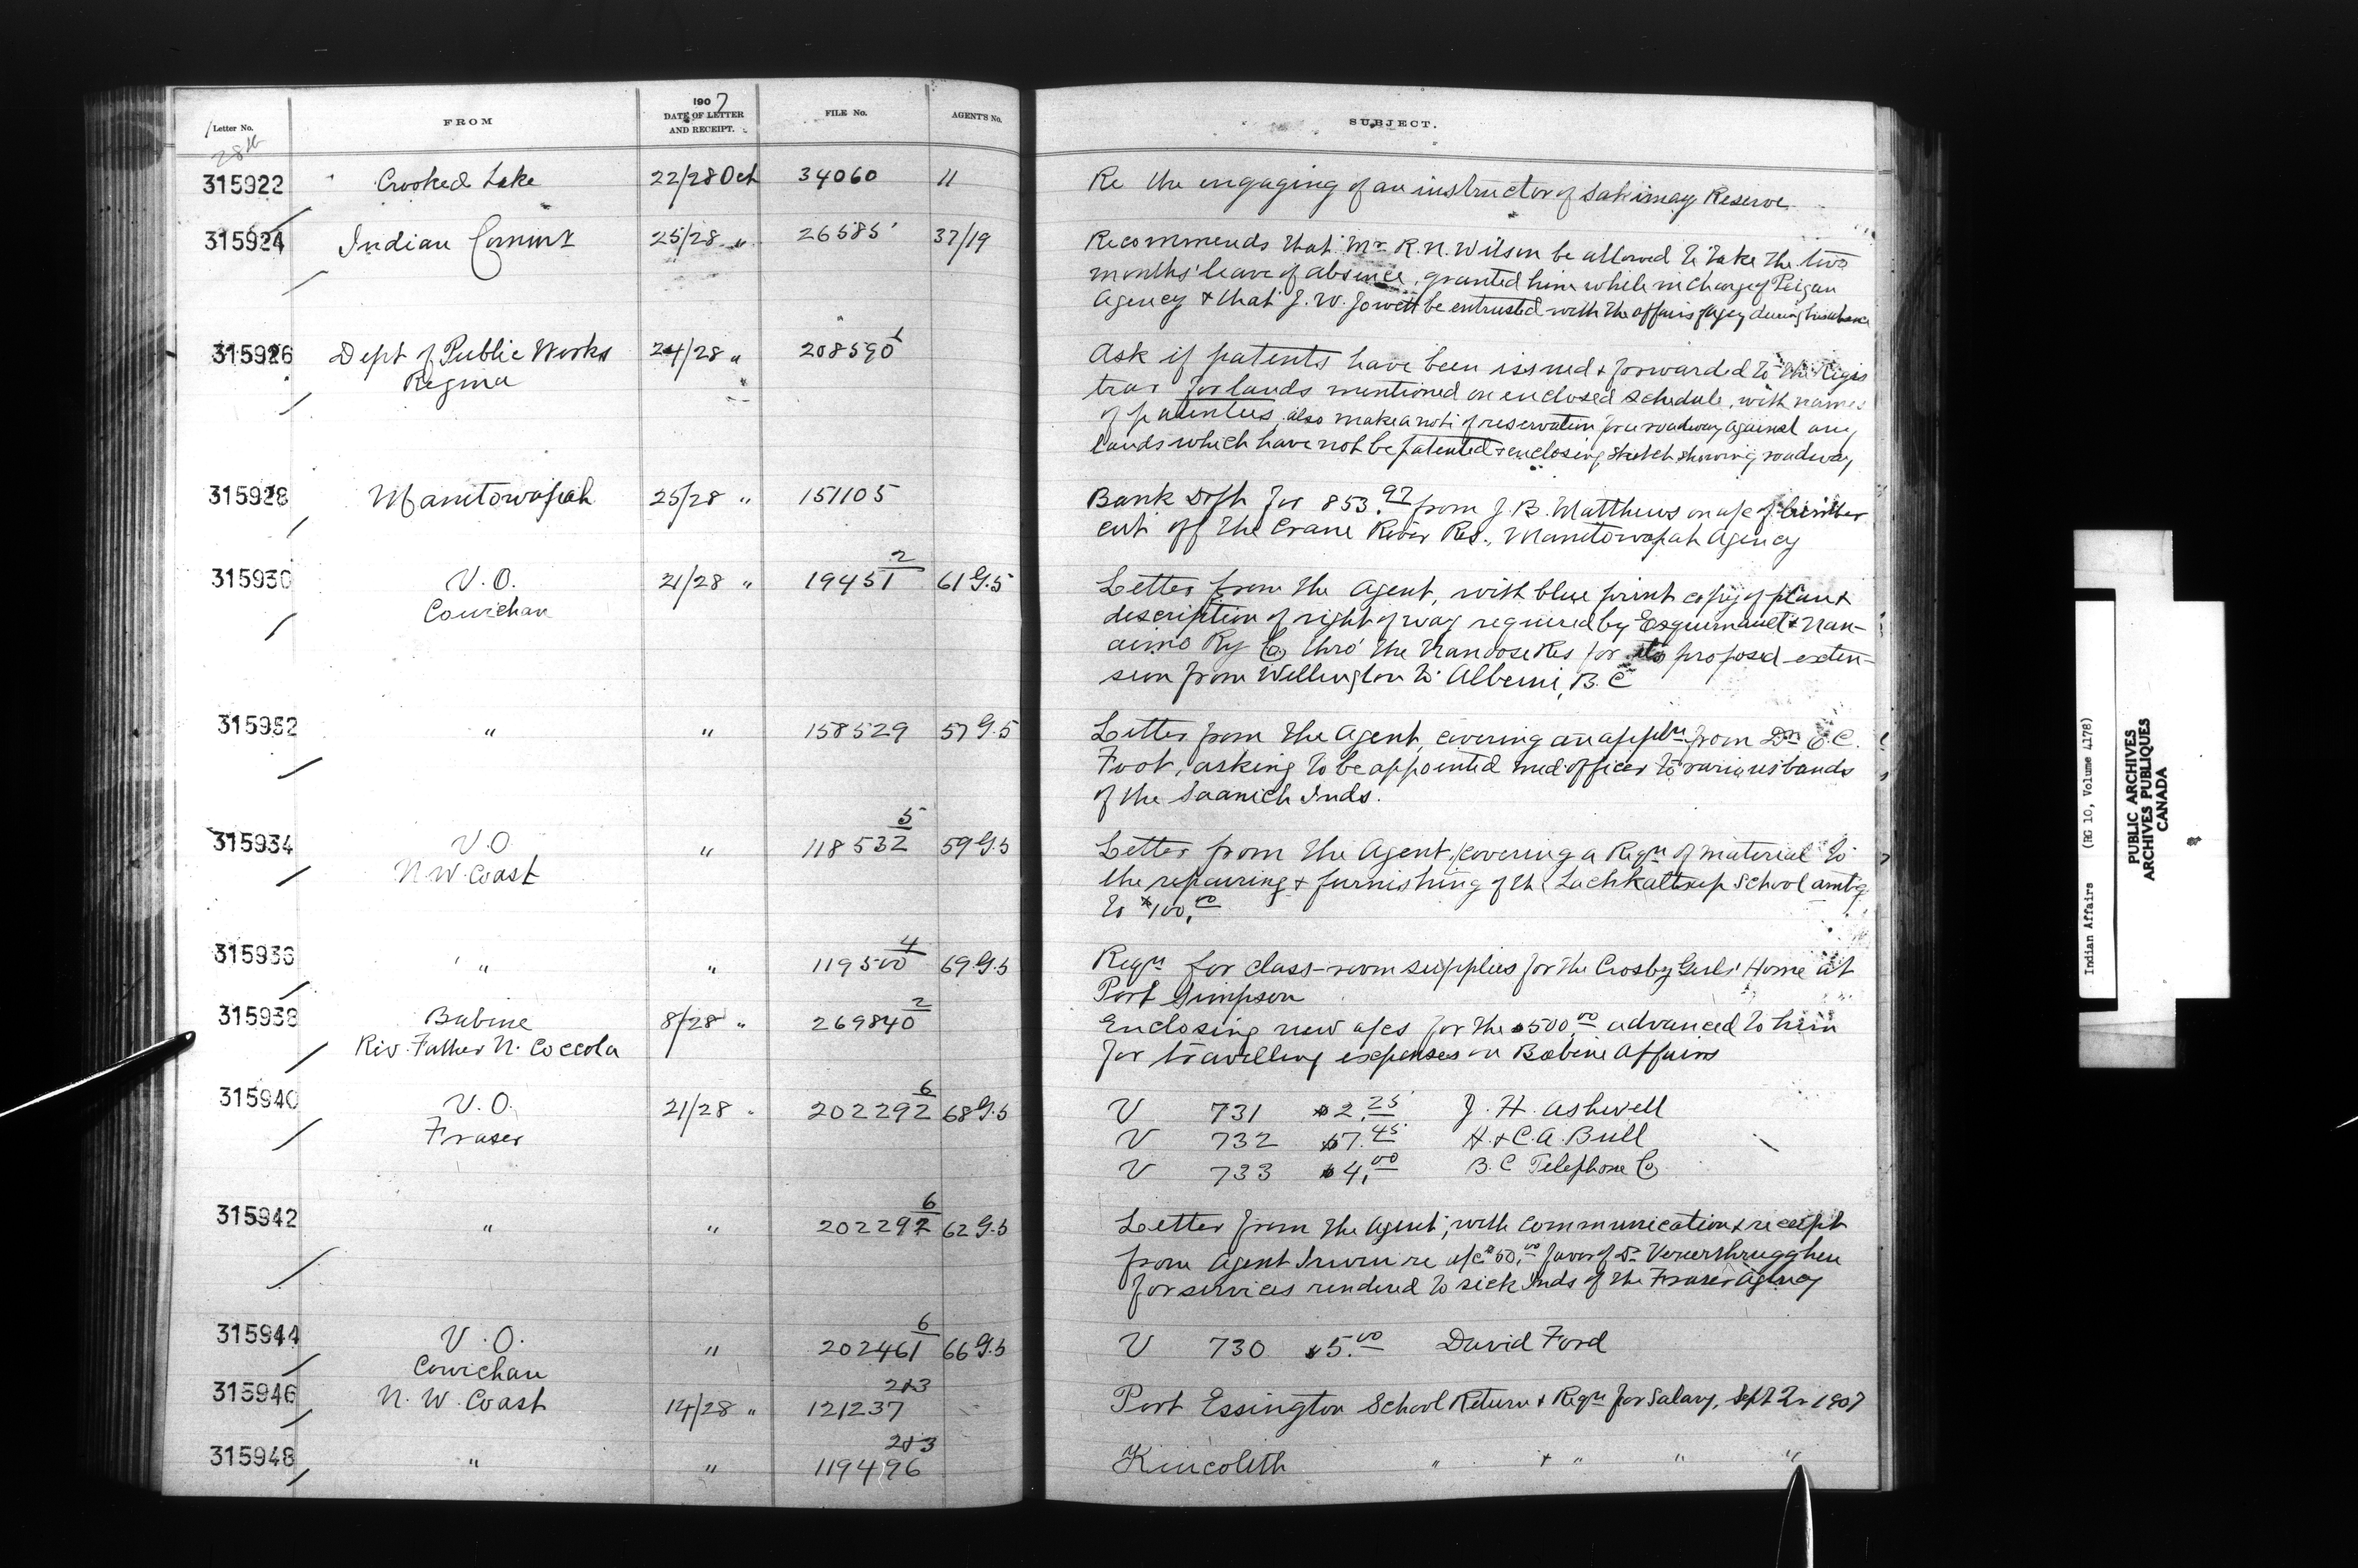 1907
Letter No. FROM DATE OF LETTER AND RECEIPT. FILE No. AGENT'S No. SUBJECT.
28th
315922 Crooked Lake 22/28 Oct 34060 11 Re the engaging of an instructor of Sakimay Reserve
315924 Indian Commr 25/28 " 26585 37/19 Recommends that Mr R. N. Wilson be allowed to take the two
months' leave of absence, granted him while in charge of Peigan
Agency & that J. W. Jowett be entrusted with the affairs of agcy during his absence
315926 Dept of Public Works 24/28 " 208590 1 Ask if patents have been issued & forwarded to the Regis
Regina trar for lands mentioned on enclosed schedule, with names
of patentees, also make a note of reservation for a roadway against any
lands which have not be patented & enclosing sketch showing roadway
315928 Manitowapah 25/28 " 151105 Bank Dft for 853.97 from J. B. Matthews on a/c of timber
cut off the Crane River Res., Manitowapah Agency
315930 V. O. 21/28 " 19451 2 61 G.5 Letter from the Agent, with blue print copy of plan &
Cowichan description of right of way required by Esquimault & Nan-
aimo Ry Co thro' the Nanoose Res for its proposed exten-
sion from Wellington to Alberni, B. C
315932 " " 158529 57 G.5 Letter from the Agent, covering an appln from Dr E. C.
Foot, asking to be appointed med. officer to various bands
of the Saanich Inds.
315934 V. O. " 118532 5 59 G.5 Letter from the Agent, covering a Reqn of material to
N. W. Coast the repairing & furnishing of the Lachkaltsap School amt'g
to $100.00
315936 " " 119500 4 69 G.5 Reqn for class-room supplies for the Crosby Girls' Home at
Port Simpson
315938 Babine 8/28 " 269840 2 Enclosing new a/cs for the $500.00 advanced to him
Rev. Father N. Coccola for travelling expenses on Babine Affairs
315940 V. O. 21/28 " 202292 6 68 G.5 V 731 $2.25 J. H. Ashwell
Fraser V 732 $7.45 H. & C. A. Bull
V 733 $4.00 B. C Telephone Co
315942 " " 202292 6 62 G.5 Letter from the Agent, with communication & receipt
from Agent Irwin re a/c $50.00 favor of Dr
for services rendered to sick Inds of the Fraser Agency
315944 V. O. " 202461 6 66 G.5 V 730 $5.00 David Ford
Cowichan
315946 N. W. Coast 14/28 " 121237 2&3 Port Essington School Return & Reqn for Salary, Sept Qr 1907
315948 " " 119496 2&3 Kincolith " & " " "
Indian Affairs (RG 10, Volume 4178)
PUBLIC ARCHIVES
ARCHIVES PUBLIQUES
CANADA